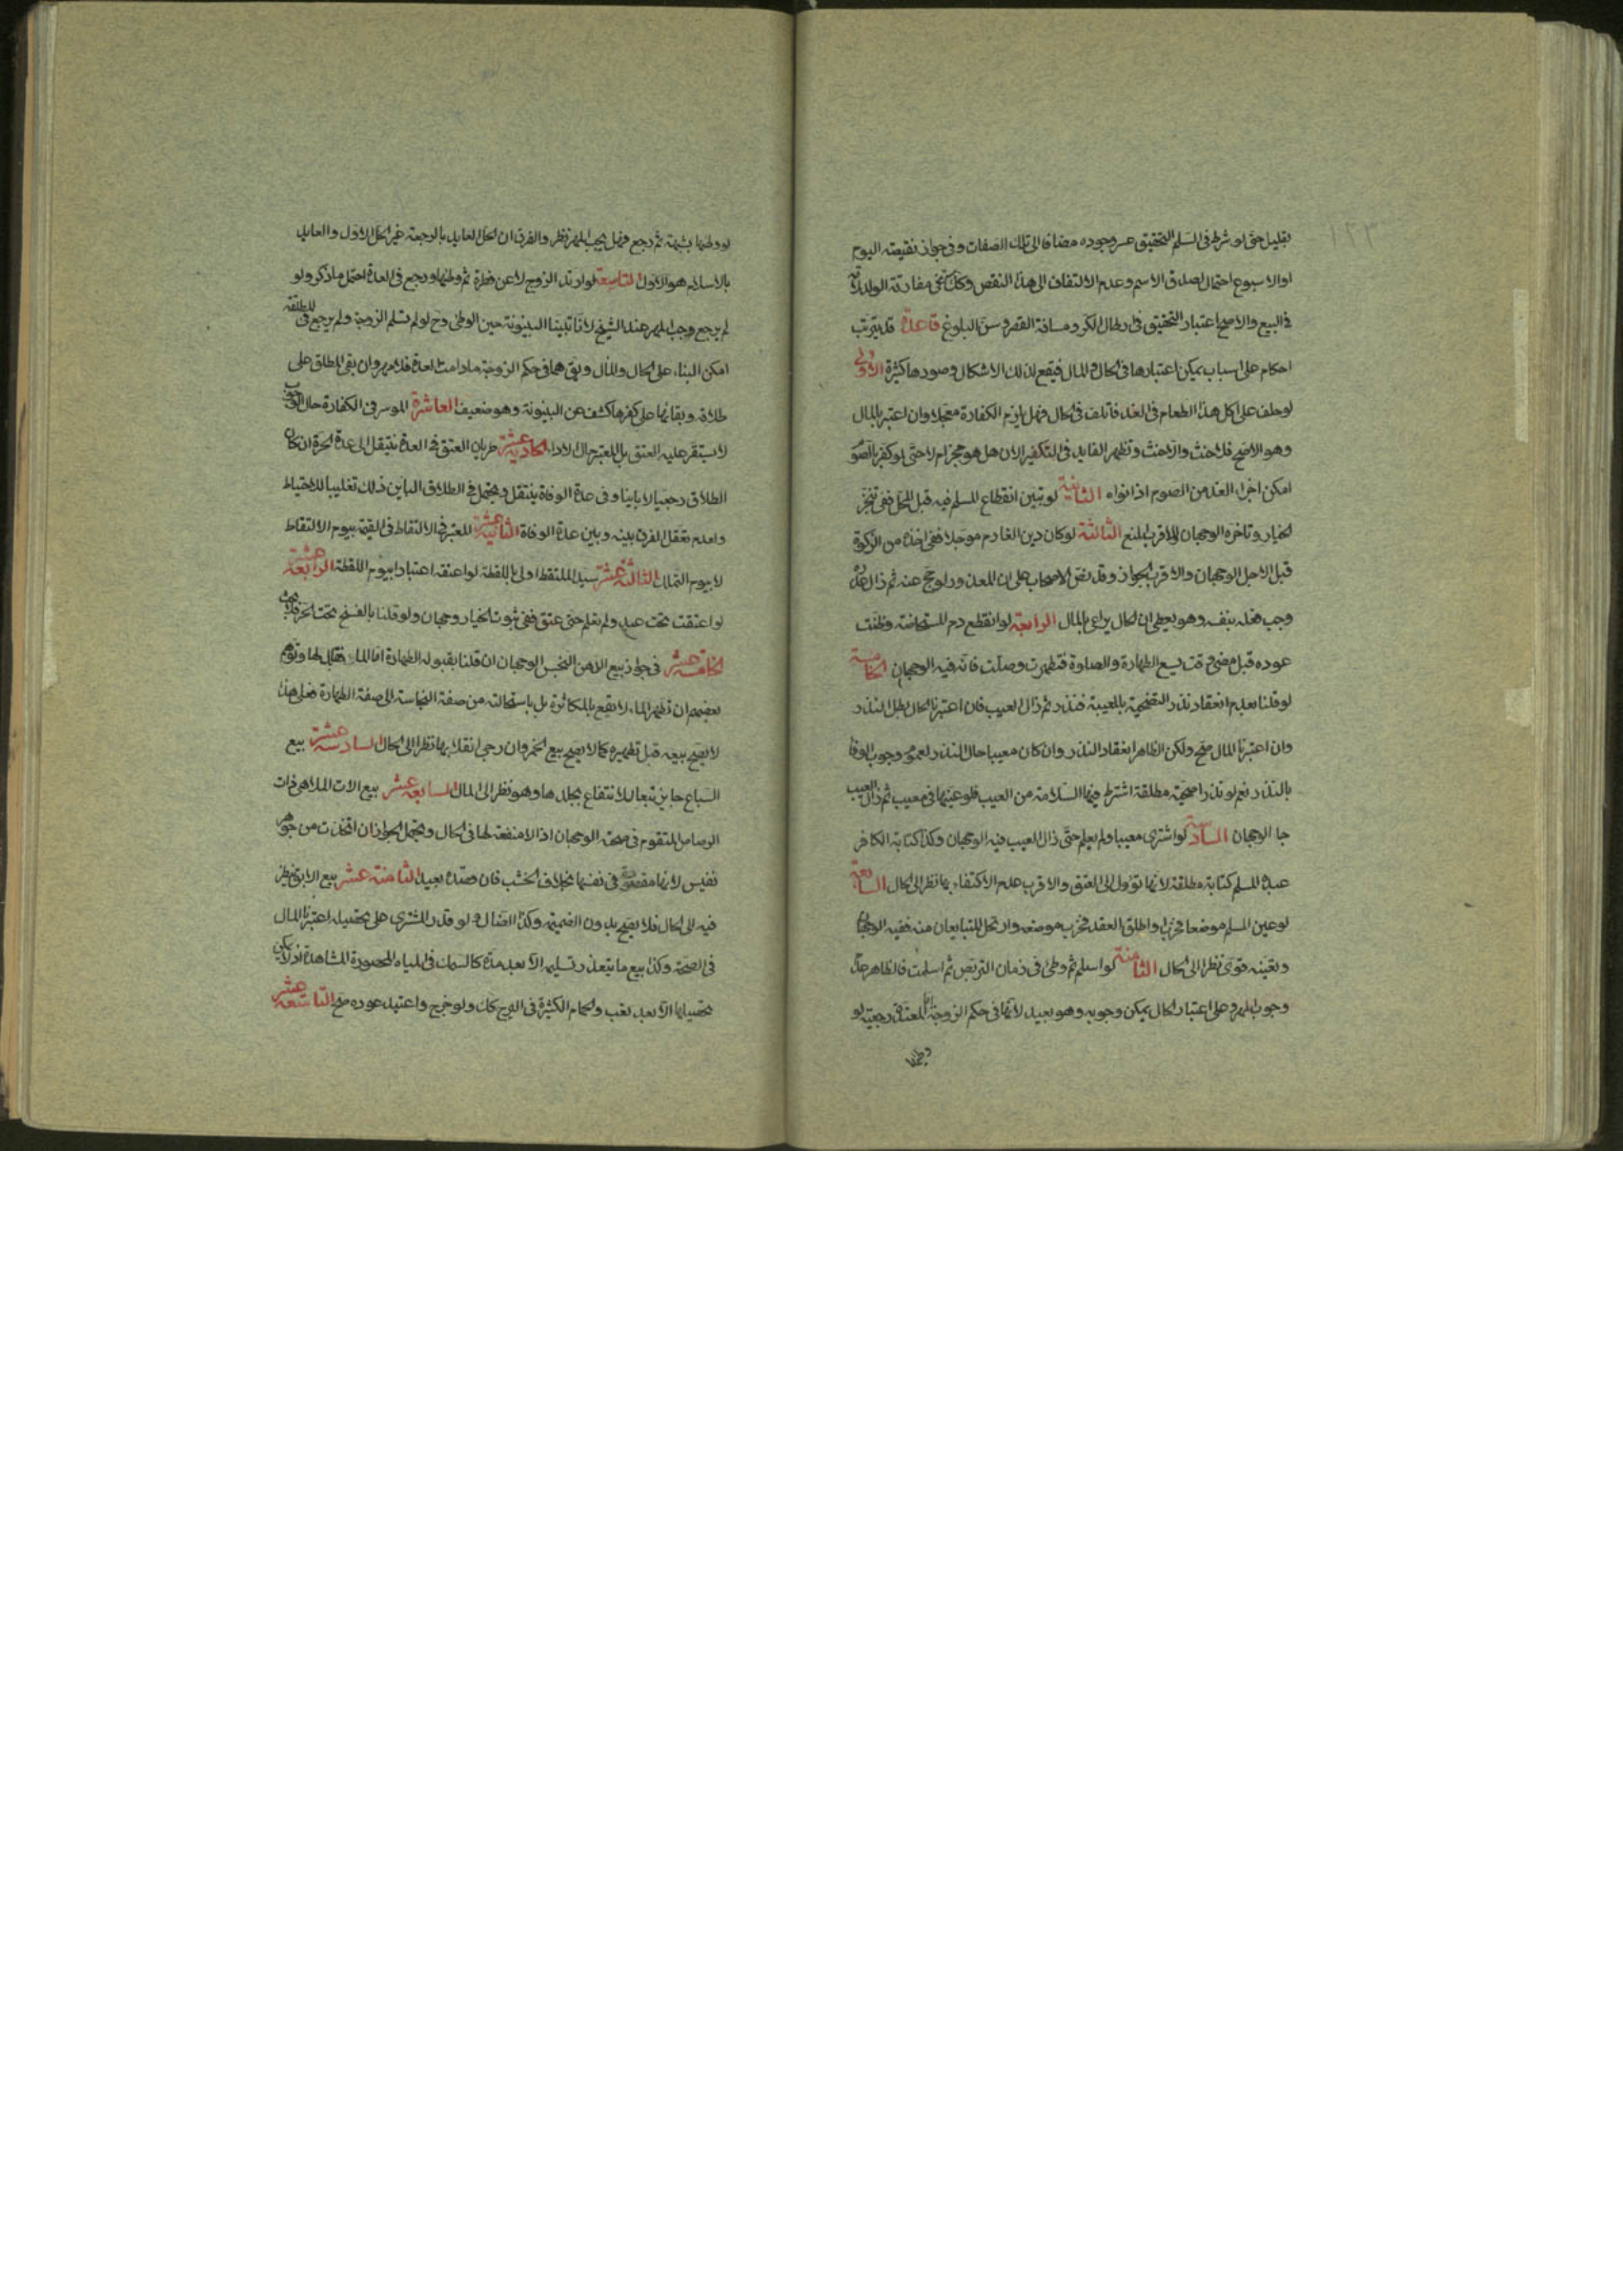 بقليل حتى لو شرط فى السلم التحقيق عسر وجوده مضافا الى تلك الصفات وفى جواز نقيصته اليوم
او الاسبوع احتمال لصدق الاسم وعدم الالتفات الى هذا النقص وكذلك فى مفارقة الولد لامه
فى البيع والاصح اعتبار التحقيق فى ارطال الكر ومسافة القصر وسن البلوغ قاعدة قد يترتب
احكام على اسباب يمكن اعتبارها فى الحال والمال فيقع لذلك الاشكال وصورها كثيرة الاولى
لو حلف على اكل هذا الطعام فى الغد فاتلف فى الحال فهل يلزم الكفارة معجلا وان اعتبر بالمال
وهو الاصح فلا حنث والا حنث وتظهر الفايدة فى التكفير الان هل هو مجز ام لا حتى لو كفر بالصوم
امكن اجزاء الغد من الصوم اذا نواه الثانية لو تبين انقطاع المسلم فيه قبل المحل ففى تنجز
الخيار وتاخره الوجهان والاقرب المنع الثالثة لو كان دين الغارم موجلا ففى اخذه من الزكوة
قبل الاجل الوجهان والاقرب الجواز وقد نص الاصحاب على ان المعذور لو حج عنه ثم زال عذره
وجب فعله بنفسه وهو يعطى ان الحال يراعى بالمال الرابعة لو انقطع دم المستحاضة وظنت
عوده قبل مضى وقت يسع الطهارة والصلوة فتطهرت وصلت فانه فيه الوجهان الخامسة
لو قلنا بعدم انعقاد نذر التضحية بالمعيبة فنذر ثم زال العيب فان اعتبرنا الحال بطل النذر
وان اعتبرنا المال صح ولكن الظاهر انعقاد النذر وان كان معيبا حال النذر لعموم وجوب الوفا
بالنذر نعم لو نذر اضحية مطلقة اشترط فيها السلامة من العيب فلو عينها فى معيب ثم زال العيب
جا الوجهان السادسة لو اشترى معيبا ولم يعلم حتى زال العيب فيه الوجهان وكذا كتابة الكافر
عبده المسلم كتابة مطلقة لانها تؤل الى العتق والاقرب عدم الاكتفاء بها نظرا الى الحال السابعة
لو عين المسلم موضعا فخرب او اطلق العقد فخرب موضعه وارتحل المتبايعان منه ففيه الوجهان
وتعينه قوى نظرا الى الحال الثامنة لو اسلم ثم وطئ فى زمان التربص ثم اسلمت فالظاهر عدم
وجوب المهر وعلى اعتبار الحال يمكن وجوبه وهو بعيد لانها فى حكم الزوجة اما المعتدة رجعية لو
وطئها
لو وطئها بشبهة ثم رجع فهل يجب المهر نظر والفرق ان الحل العايد بالرجعة غير الحل الاول والعايد
بالاسلام هو الاول التاسعة لو ارتد الزوج لا عن فطرة ثم وطئها ورجع فى العدة احتمل ما ذكر ولو
لم يرجع وجب المهر عند الشيخ لانا تبينا البينونة حين الوطئ وح لو لم تسلم الزوجة ولم يرجع فى المطلقة
امكن البناء على الحال والمال وبقى هما فى حكم الزوجة ما دامت العدة فلا مهر وان بقى المطلق على
طلاقه وبقائها على كفرها كشف عن البينونة وهو ضعيف العاشرة الموسر فى الكفارة حال الوجوب
لا يستقر عليه العتق بل المعتبر حال الاداء الحادية عشرة طريان العتق فى العدة ينتقل الى عدة الحرة ان كان
الطلاق رجعيا لا باينا وفى عدة الوفاة ينتقل ويحتمل فى الطلاق الباين ذلك تغليبا للاحتياط
ولعدم تعقل الفرق بينه وبين عدة الوفاة الثانية عشرة المعتبر فى الالتقاط فى القيمة بيوم الالتقاط
لا بيوم التملك الثالثة عشرة سيد الملتقط اولى باللقطة لو اعتقه اعتبارا بيوم اللقطة الرابعة عشرة
لو اعتقت تحت عبد ولم تعلم حتى عتق ففى ثبوت الخيار وجهان ولو قلنا بالفسخ تحت الحر فلا بحث
الخامسة عشر فى جواز بيع الدهن النجس الوجهان ان قلنا بقبوله الطهارة اما الماء فقابل لها وتوهم
بعضهم ان تطهر الماء لا يقع بالمكاثرة بل باستحالته من صفة النجاسة الى صفة الطهارة فعلى هذا
لا يصح بيعه قبل تطهيره كما لا يصح بيع الخمر وان رجى انقلابها نظرا الى الحال السادسة عشرة بيع
السباع جايز تبعا للانتفاع بجلدها وهو نظر الى المال السابعة عشر بيع الات الملاهى ذات
الرصاص المتقوم فى صحته الوجهان اذ لا منفعة لها فى الحال ويحتمل الجواز ان اتخذت من جوهر
نفيس لانها مقصودة فى نفسها بخلاف الخشب فان قصده بعيد الثامنة عشر بيع الابق نظر
فيه الى الحال فلا يصح بدون الضميمة وكذا الضال ولو قدر المشترى على تحصيله اعتبرنا المال
فى الصحة وكذا بيع ما يتعذر تسليمه الا بعد مدة كالسمك فى المياه المحصورة المشاهدة اذ لا يمكن
تحصيلها الا بعد تعب والحمام الكثيرة فى البرج كك ولو خرج واعتيد عوده صح التاسعة عشر